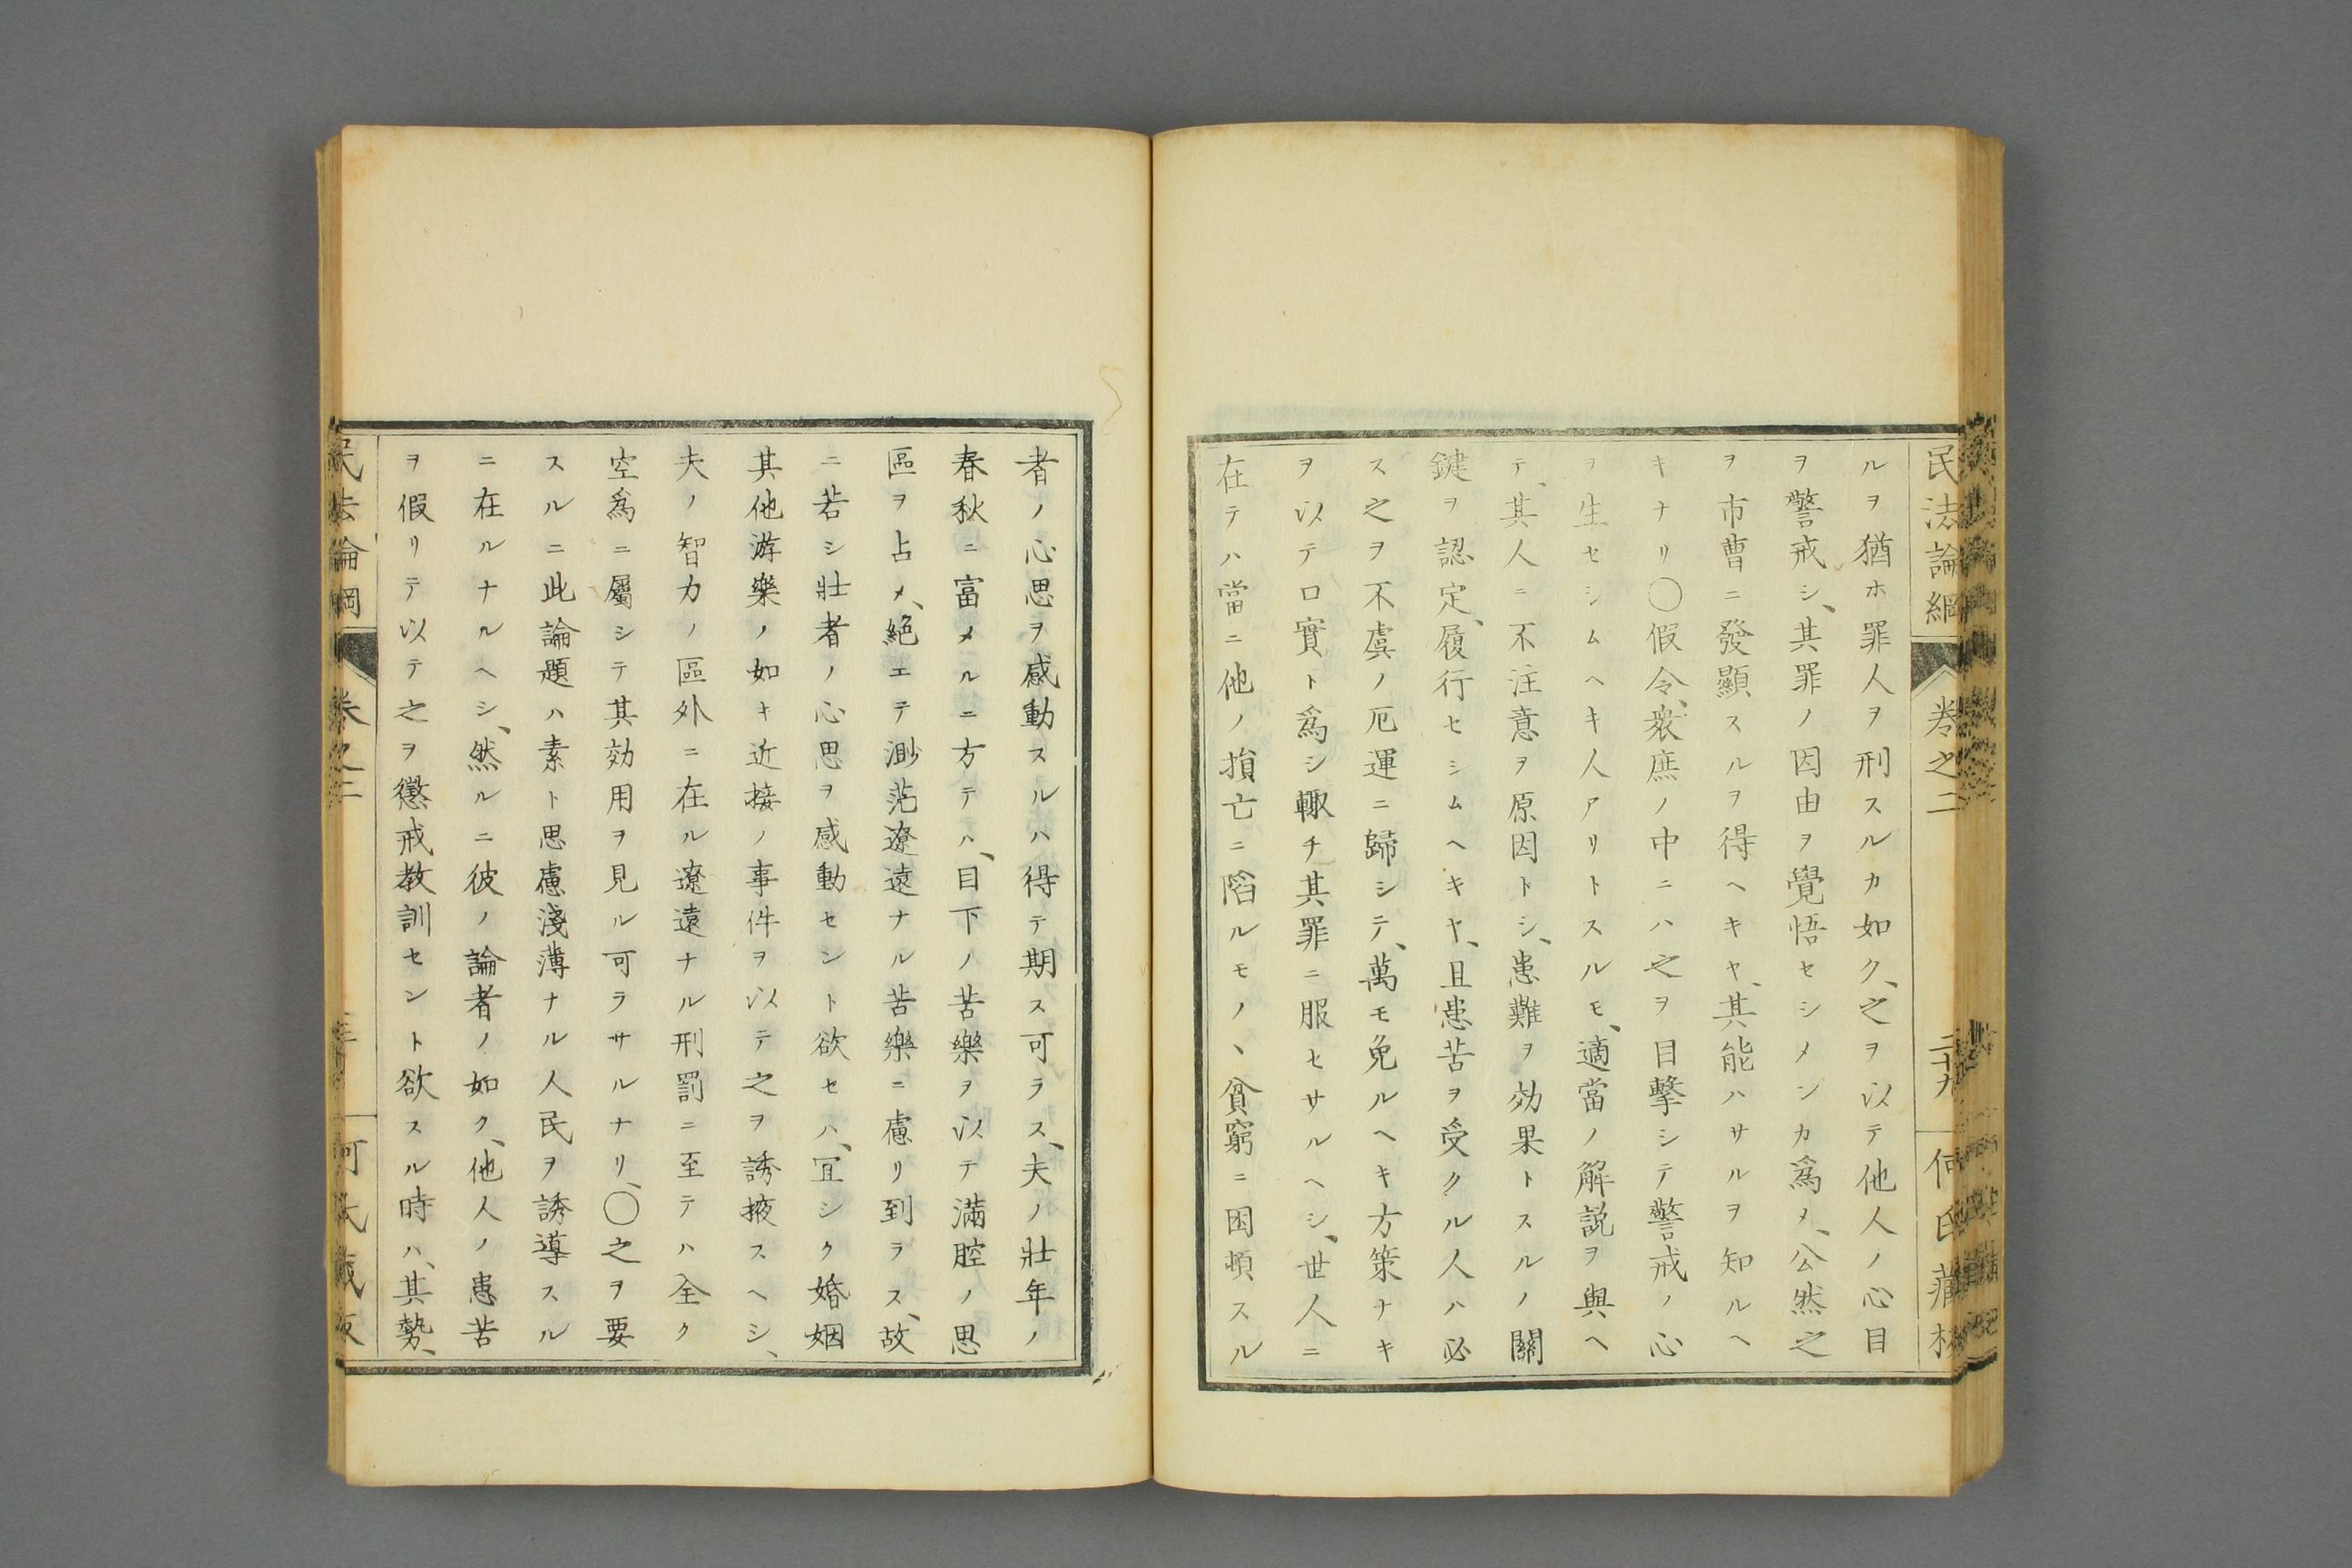 民法論綱 卷之二 二十九 何氏藏板
ルヲ猶ホ罪人ヲ刑スルカ如ク、之ヲ以テ他人ノ心目
ヲ警戒シ、其罪ノ因由ヲ覺悟セシメンカ爲メ、公然之
ヲ市曹ニ發顯スルヲ得ヘキヤ、其能ハサルヲ知ルヘ
キナリ〇假令、衆庶ノ中ニハ之ヲ目擊シテ警戒ノ心
ヲ生セシムヘキ人アリトスルモ、適當ノ解説ヲ與ヘ
テ、其人ニ不注意ヲ原因トシ、患難ヲ効果トスルノ關
鍵ヲ認定、履行セシムヘキヤ、且患苦ヲ受クル人ハ必
ス之ヲ不虞ノ厄運ニ歸シテ、萬モ免ルヘキ方策ナキ
ヲ以テ口實ト爲シ輙チ其罪ニ服セサルヘシ、世人ニ
在テハ當ニ他ノ損亡ニ陷ルモノ、貧窮ニ困頓スル
者ノ心思ヲ感動スルハ得テ期ス可ラス、夫ノ壯年ノ
春秋ニ富メルニ方テハ、目下ノ苦樂ヲ以テ滿腔ノ思
區ヲ占メ、絕エテ渺茫遼遠ナル苦樂ニ慮リ到ラス、故
ニ若シ壯者ノ心思ヲ感動セント欲セハ、宜シク婚姻
其他游樂ノ如キ近接ノ事件ヲ以テ之ヲ誘掖スヘシ、
夫ノ智力ノ區外ニ在ル遼遠ナル刑罰ニ至テハ全ク
空爲ニ屬シテ其効用ヲ見ル可ラサルナリ、〇之ヲ要
スルニ此論題ハ素ト思慮淺薄ナル人民ヲ誘導スル
ニ在ルナルヘシ、然ルニ彼ノ論者ノ如ク、他人ノ患苦
ヲ假リテ以テ之ヲ懲戒教訓セント欲スル時ハ、其勢、
民法論綱 卷之二 何氏藏板